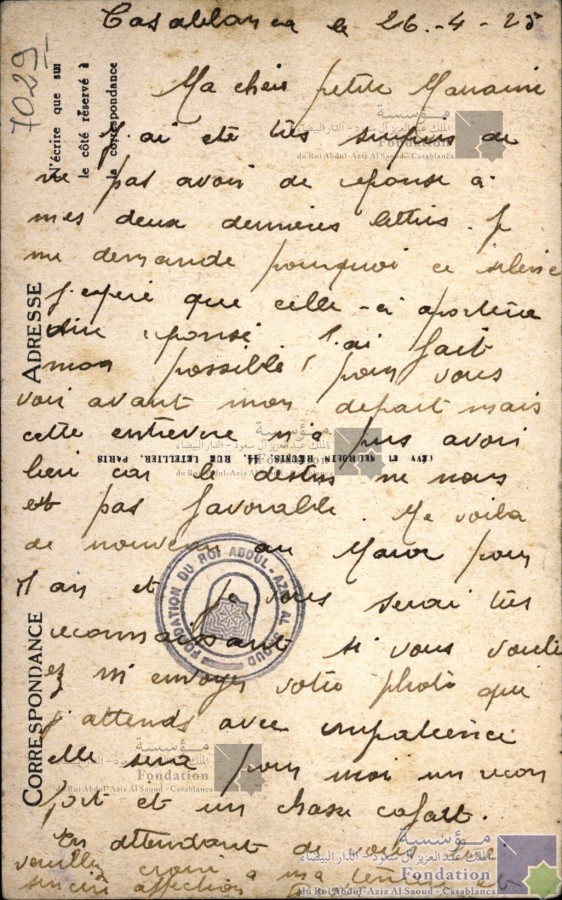 Casablanca le 26-4-25
7029
N'écrire que sur
le côté réservé à
la correspondance
Ma chère petite
J'ai été très surpris de
ne pas avoir de réponse à
mes deux dernières lettres. Je
me demande pourquoi ce silence
J'espère que celle-ci aportera
une réponse. J'ai fait
mon possible pour vous
voir avant mon depart mais
cette entrevue n'a pus avoir
lieu car le destin ne nous
est pas favorable. Me voila
de nouveau au Maroc pour
1 an et je vous serai très
reconnaissant si vous voulі
ez m'envoyer votre photo que
j'attends avec impatience
elle sera pour moi un récon
fort et un chasse cafart.
En attendant de vous lire
veuillez croire a ma tendre et
sincère affection
ADRESSE
CORRESPONDANCE
LÉVY ET NEURDEIN RÉUNIS, 44, RUE LETELLIER, PARIS
FONDATION DU ROI ABDUL-AZIZ AL SAOUD
مؤسسة
الملك عبد العزيز آل سعود - الدار البيضاء
Fondation
du Roi Abdul-Aziz Al Saoud - Casablanca
مؤسسة
الملك عبد العزيز آل سعود - الدار البيضاء
Fondation
du Roi Abdul-Aziz Al Saoud - Casablanca
مؤسسة
Fondation
du Roi Abdul-Aziz Al Saoud - Casablanca
مؤسسة
الملك عبد العزيز آل سعود - الدار البيضاء
Fondation
du Roi Abdul-Aziz Al Saoud - Casablanca